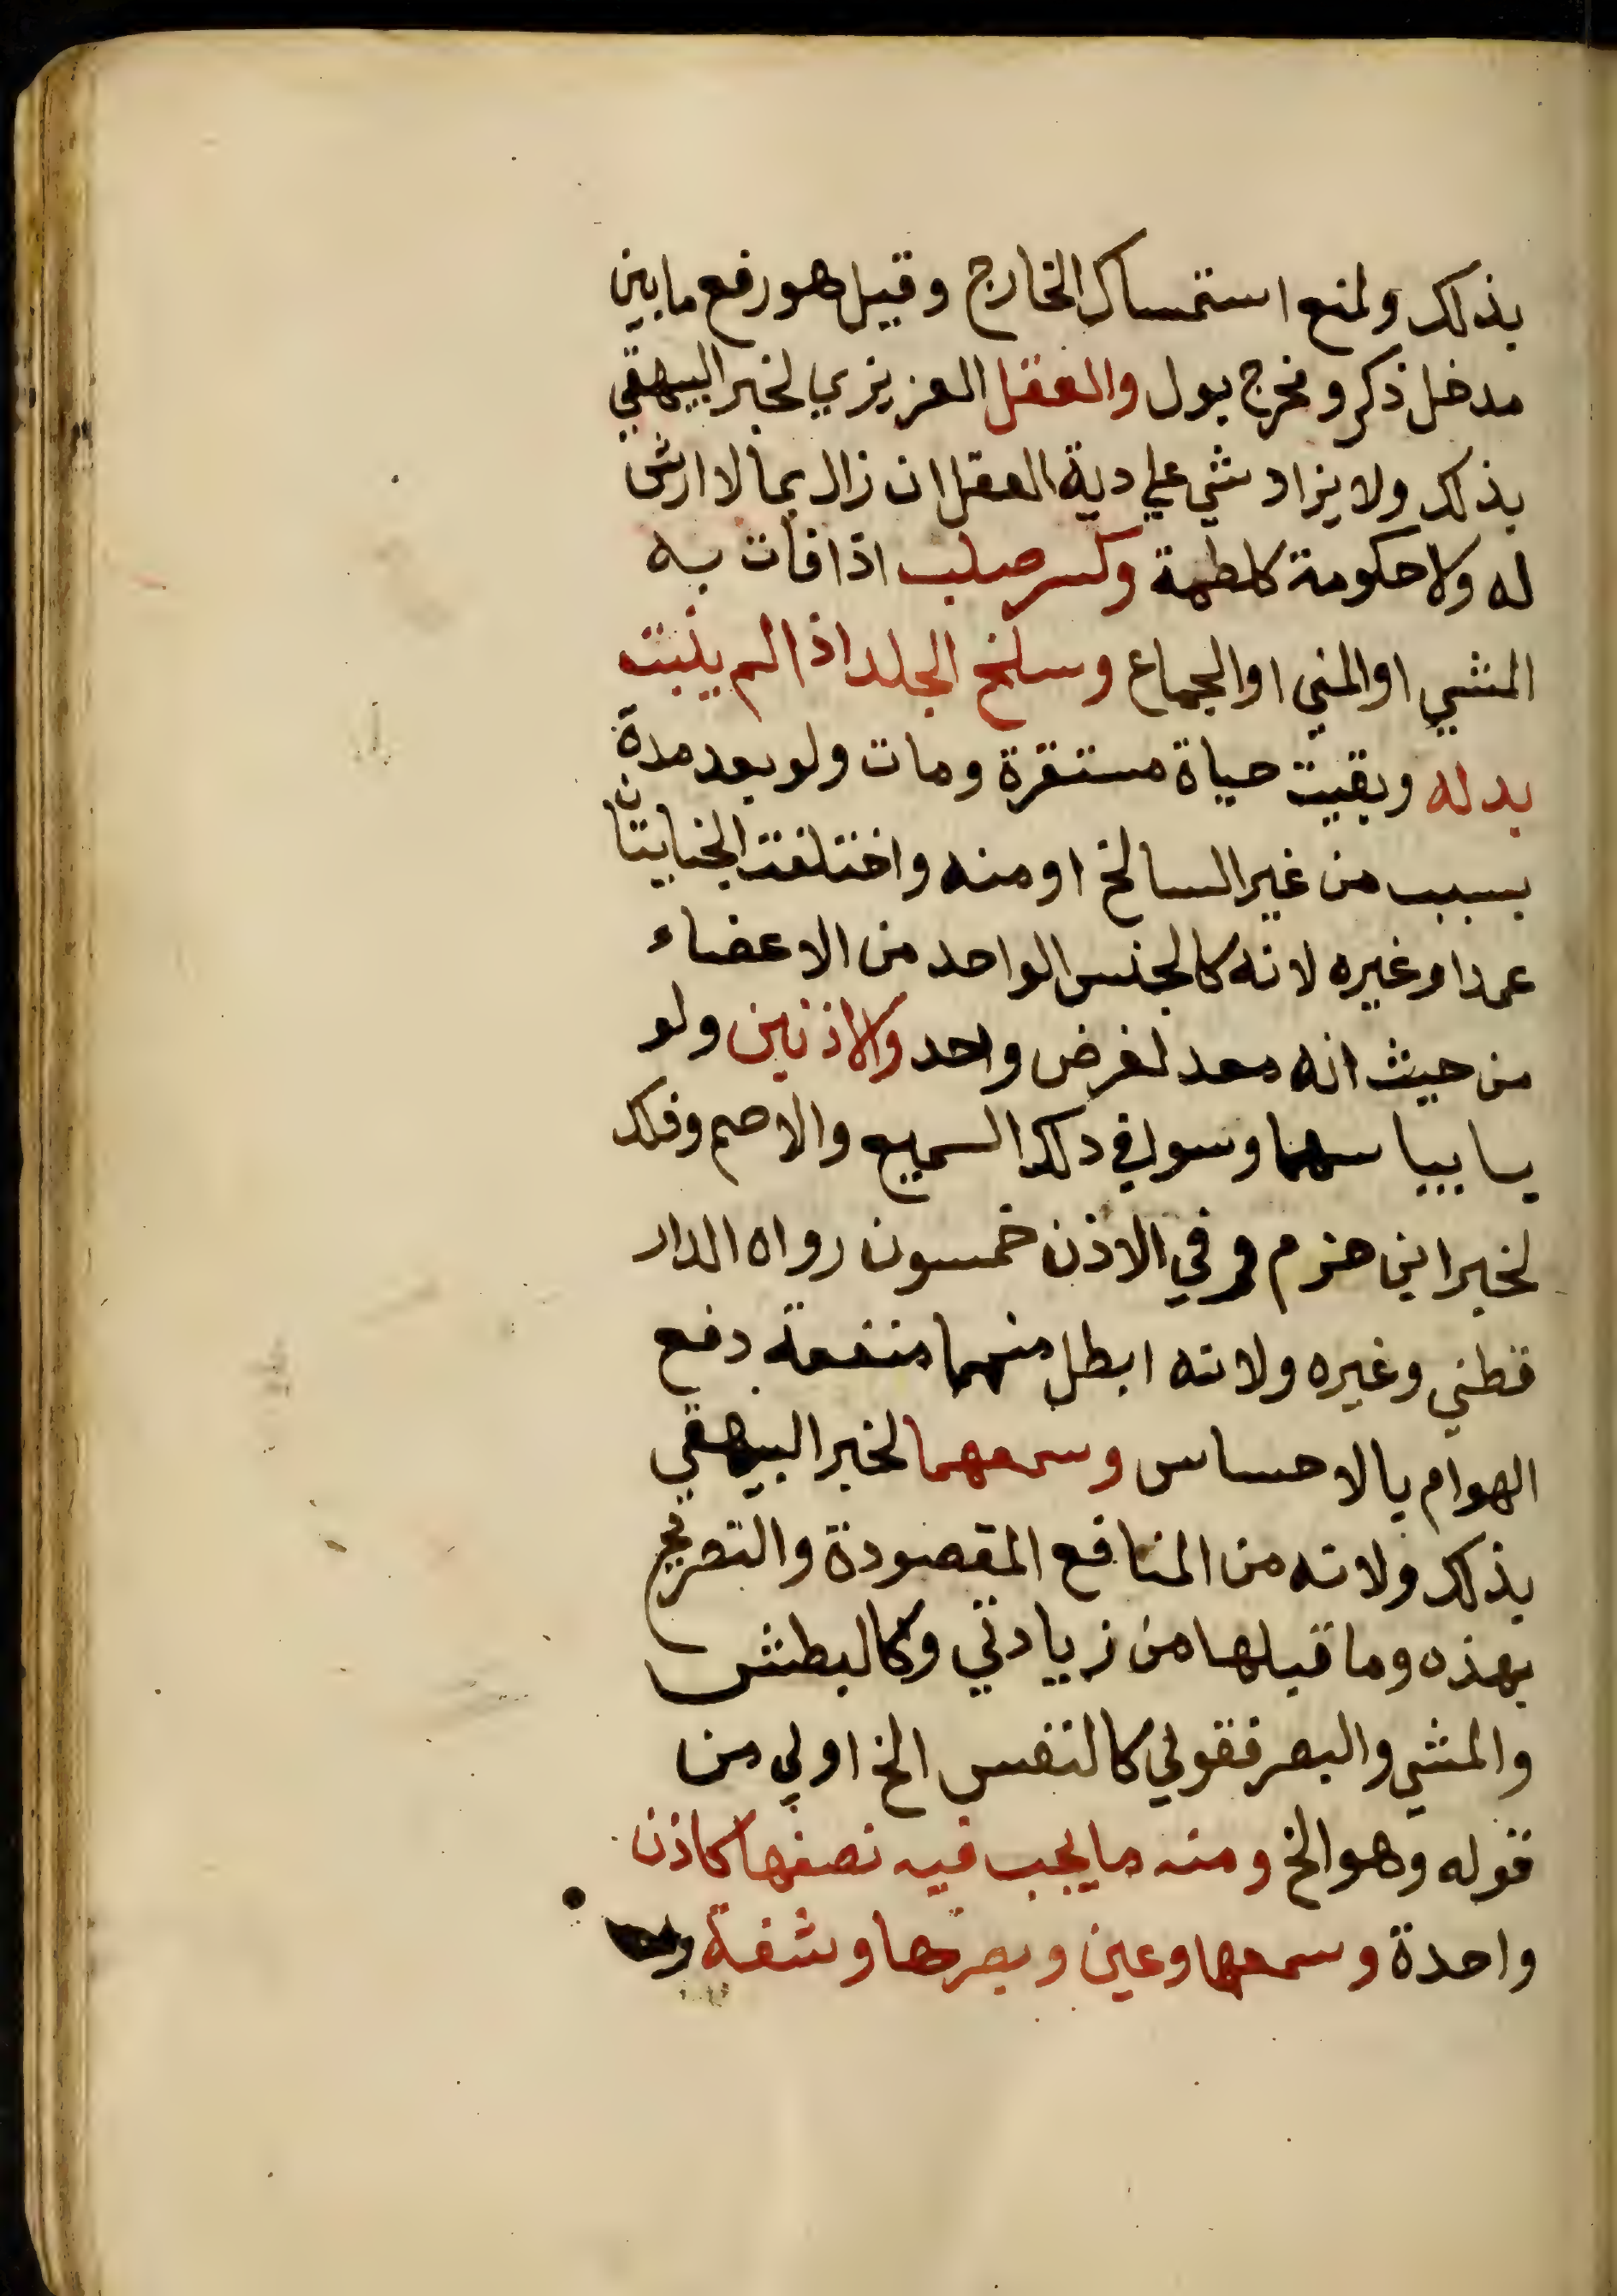 بذلك ولمنع استمساك الخارج وقيل هو رفع ما بين
مدخل ذكر ومخرج بول والعقل الغريزي لخبر البيهقي
بذلك ولا يزاد شي علي دية العقل ان زال بما لا ارش
له ولا حكومة كلطمة وكسر صلب اذا فات به
المشي او المني او الجماع وسلخ الجلد اذا لم ينبت
بدله وبقيت حياة مستقرة ومات ولو بعد مدة
بسبب من غير السالخ او منه واختلفت الجنايتان
عمدا وغيره لانه كالجنس الواحد من الاعضاء
من حيث انه معد لغرض واحد والاذنين ولو
يابيباسهما وسوا في ذلك السميع والاصم وذلك
لخبر ابن حزم وفي الاذن خمسون رواه الدار
قطني وغيره ولانه ابطل منهما منفعة دفع
الهوام بالاحساس وسمعهما لخبر البيهقي
بذلك ولانه من المنافع المقصودة والتصريح
بهذه وما قبلها من زيادتي وكالبطش
والمشي والبصر فقولي كالنفس الخ اولي من
قوله وهو الخ ومنه ما يجب فيه نصفها كاذن
واحدة وسمعها وعين وبصرها وشفة